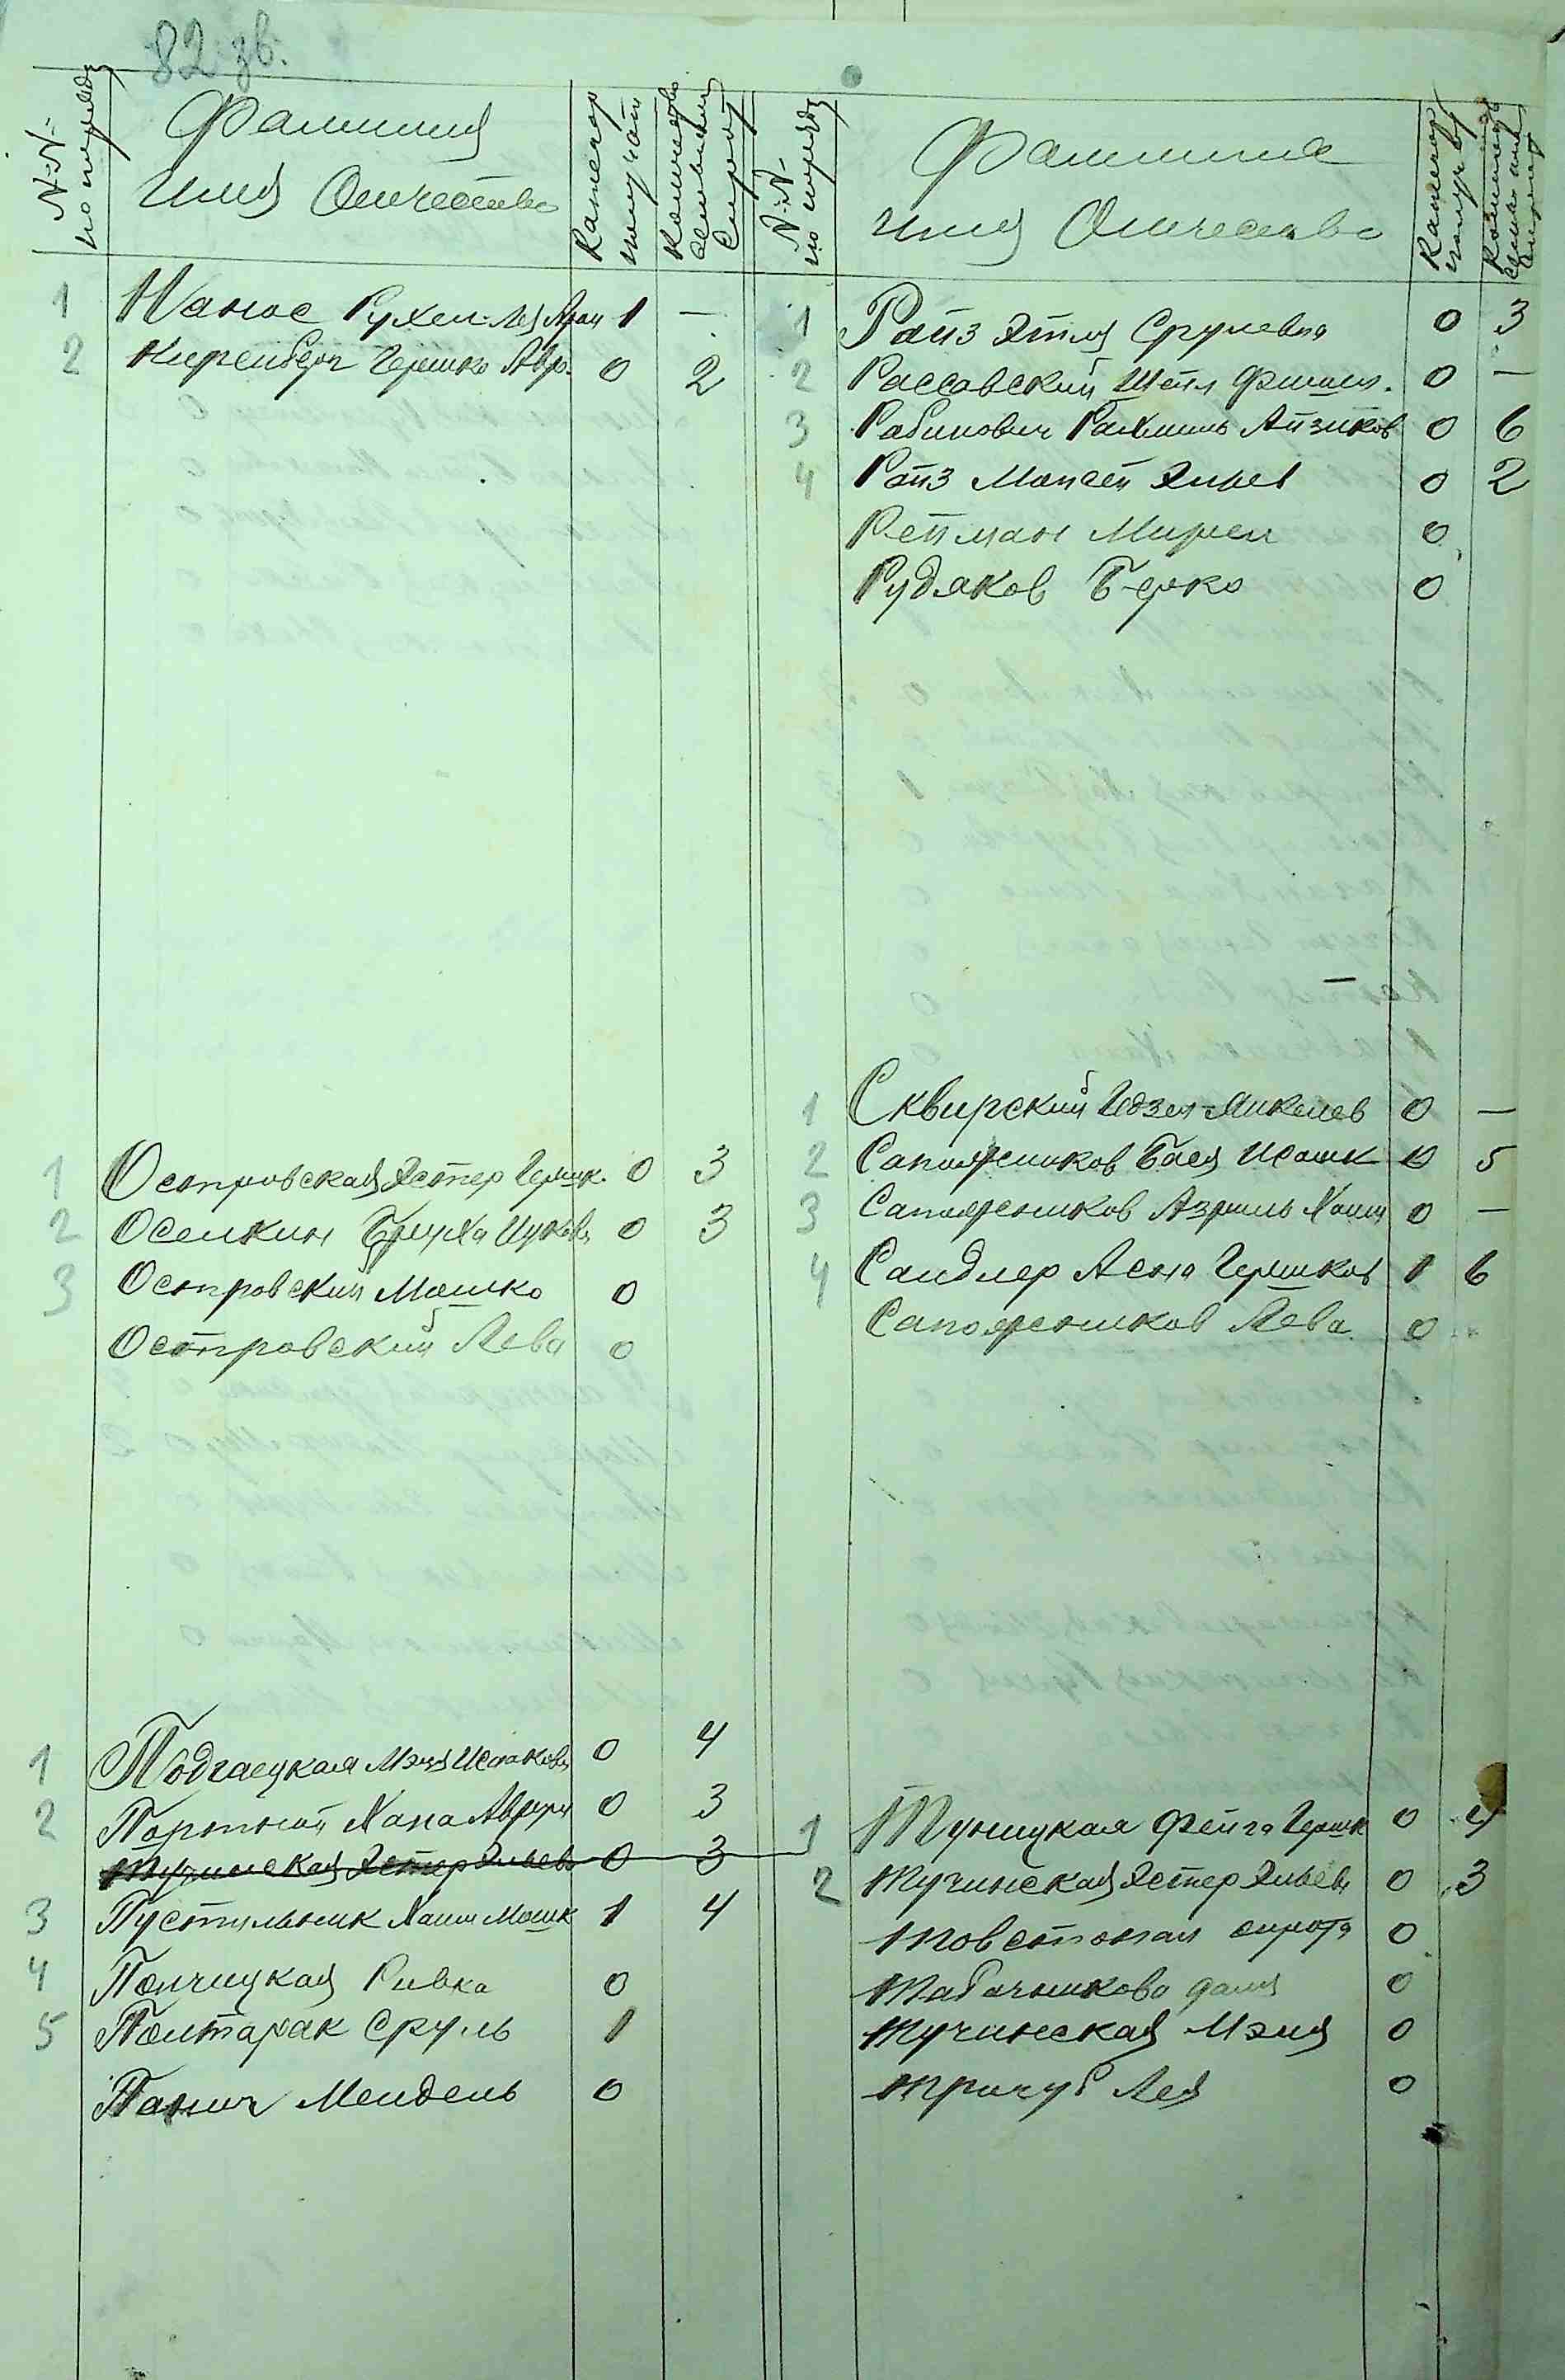 82 зв.
№№ по порядк
Фамилия
имя Отечество
Категор получат
Количество семьи или сирот
1 Нанос Рухел-Лея Арон 1 —
2 Ниренберг Гершко Авр. 0 2
1 Островская Эстер Гершк. 0 3
2 Оселкин Бруха Ицковн 0 3
3 Островский Мошко 0
Островский Лева 0
1 Подгаецкая Мэня Исааковн 0 4
2 Портной Хана Аврум 0 3
Тучинская Эстер Эльевн 0 3
3 Пустильник Хаим Мошк 1 4
4 Пончицкая Ривка 0
5 Полтарак Сруль 1
Панич Мендель 0
№№ по порядк
Фамилия
имя Отечество
Категор получат
Количество семьи или сирот
1 Райз Этля Срулевна 0 3
2 Рассавский Шейл Фишил. 0 —
3 Рабинович Рахмиль Айзиков 0 6
4 Райз Мойсей Эльев 0 2
Рейман Мирел 0
Рудяков Берко 0
1 Сквирский Идзел-Микелев 0 —
2 Сапожников Бася Иошк 0 5
3 Сапожников Азриль Хаим 0 —
4 Сандлер Асна Гершков 1 6
Сапожников Лева 0
1 Туницкая Фейга Гершк 0 4
2 Тучинская Эстер Эльевн 0 3
Товстоная сирота 0
Табачникова даня 0
Тучинская Мэня 0
Тричуб Лея 0